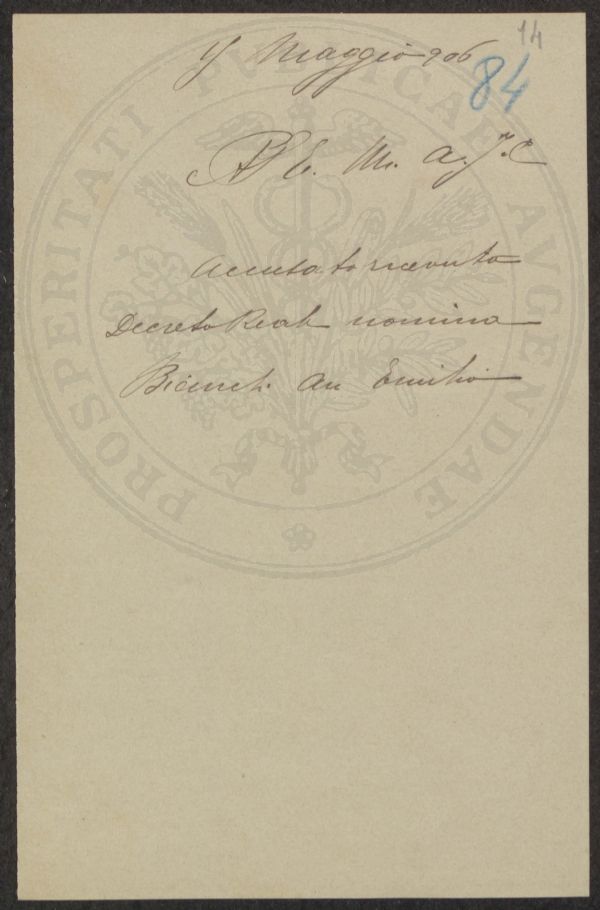 14
Maggio 906
84
A S. E. M. A. I. C.
Accusato ricevuta
Decreto Reale nomina
Bianchi Emilio
PROSPERITATI PUBLICAE AUGENDAE